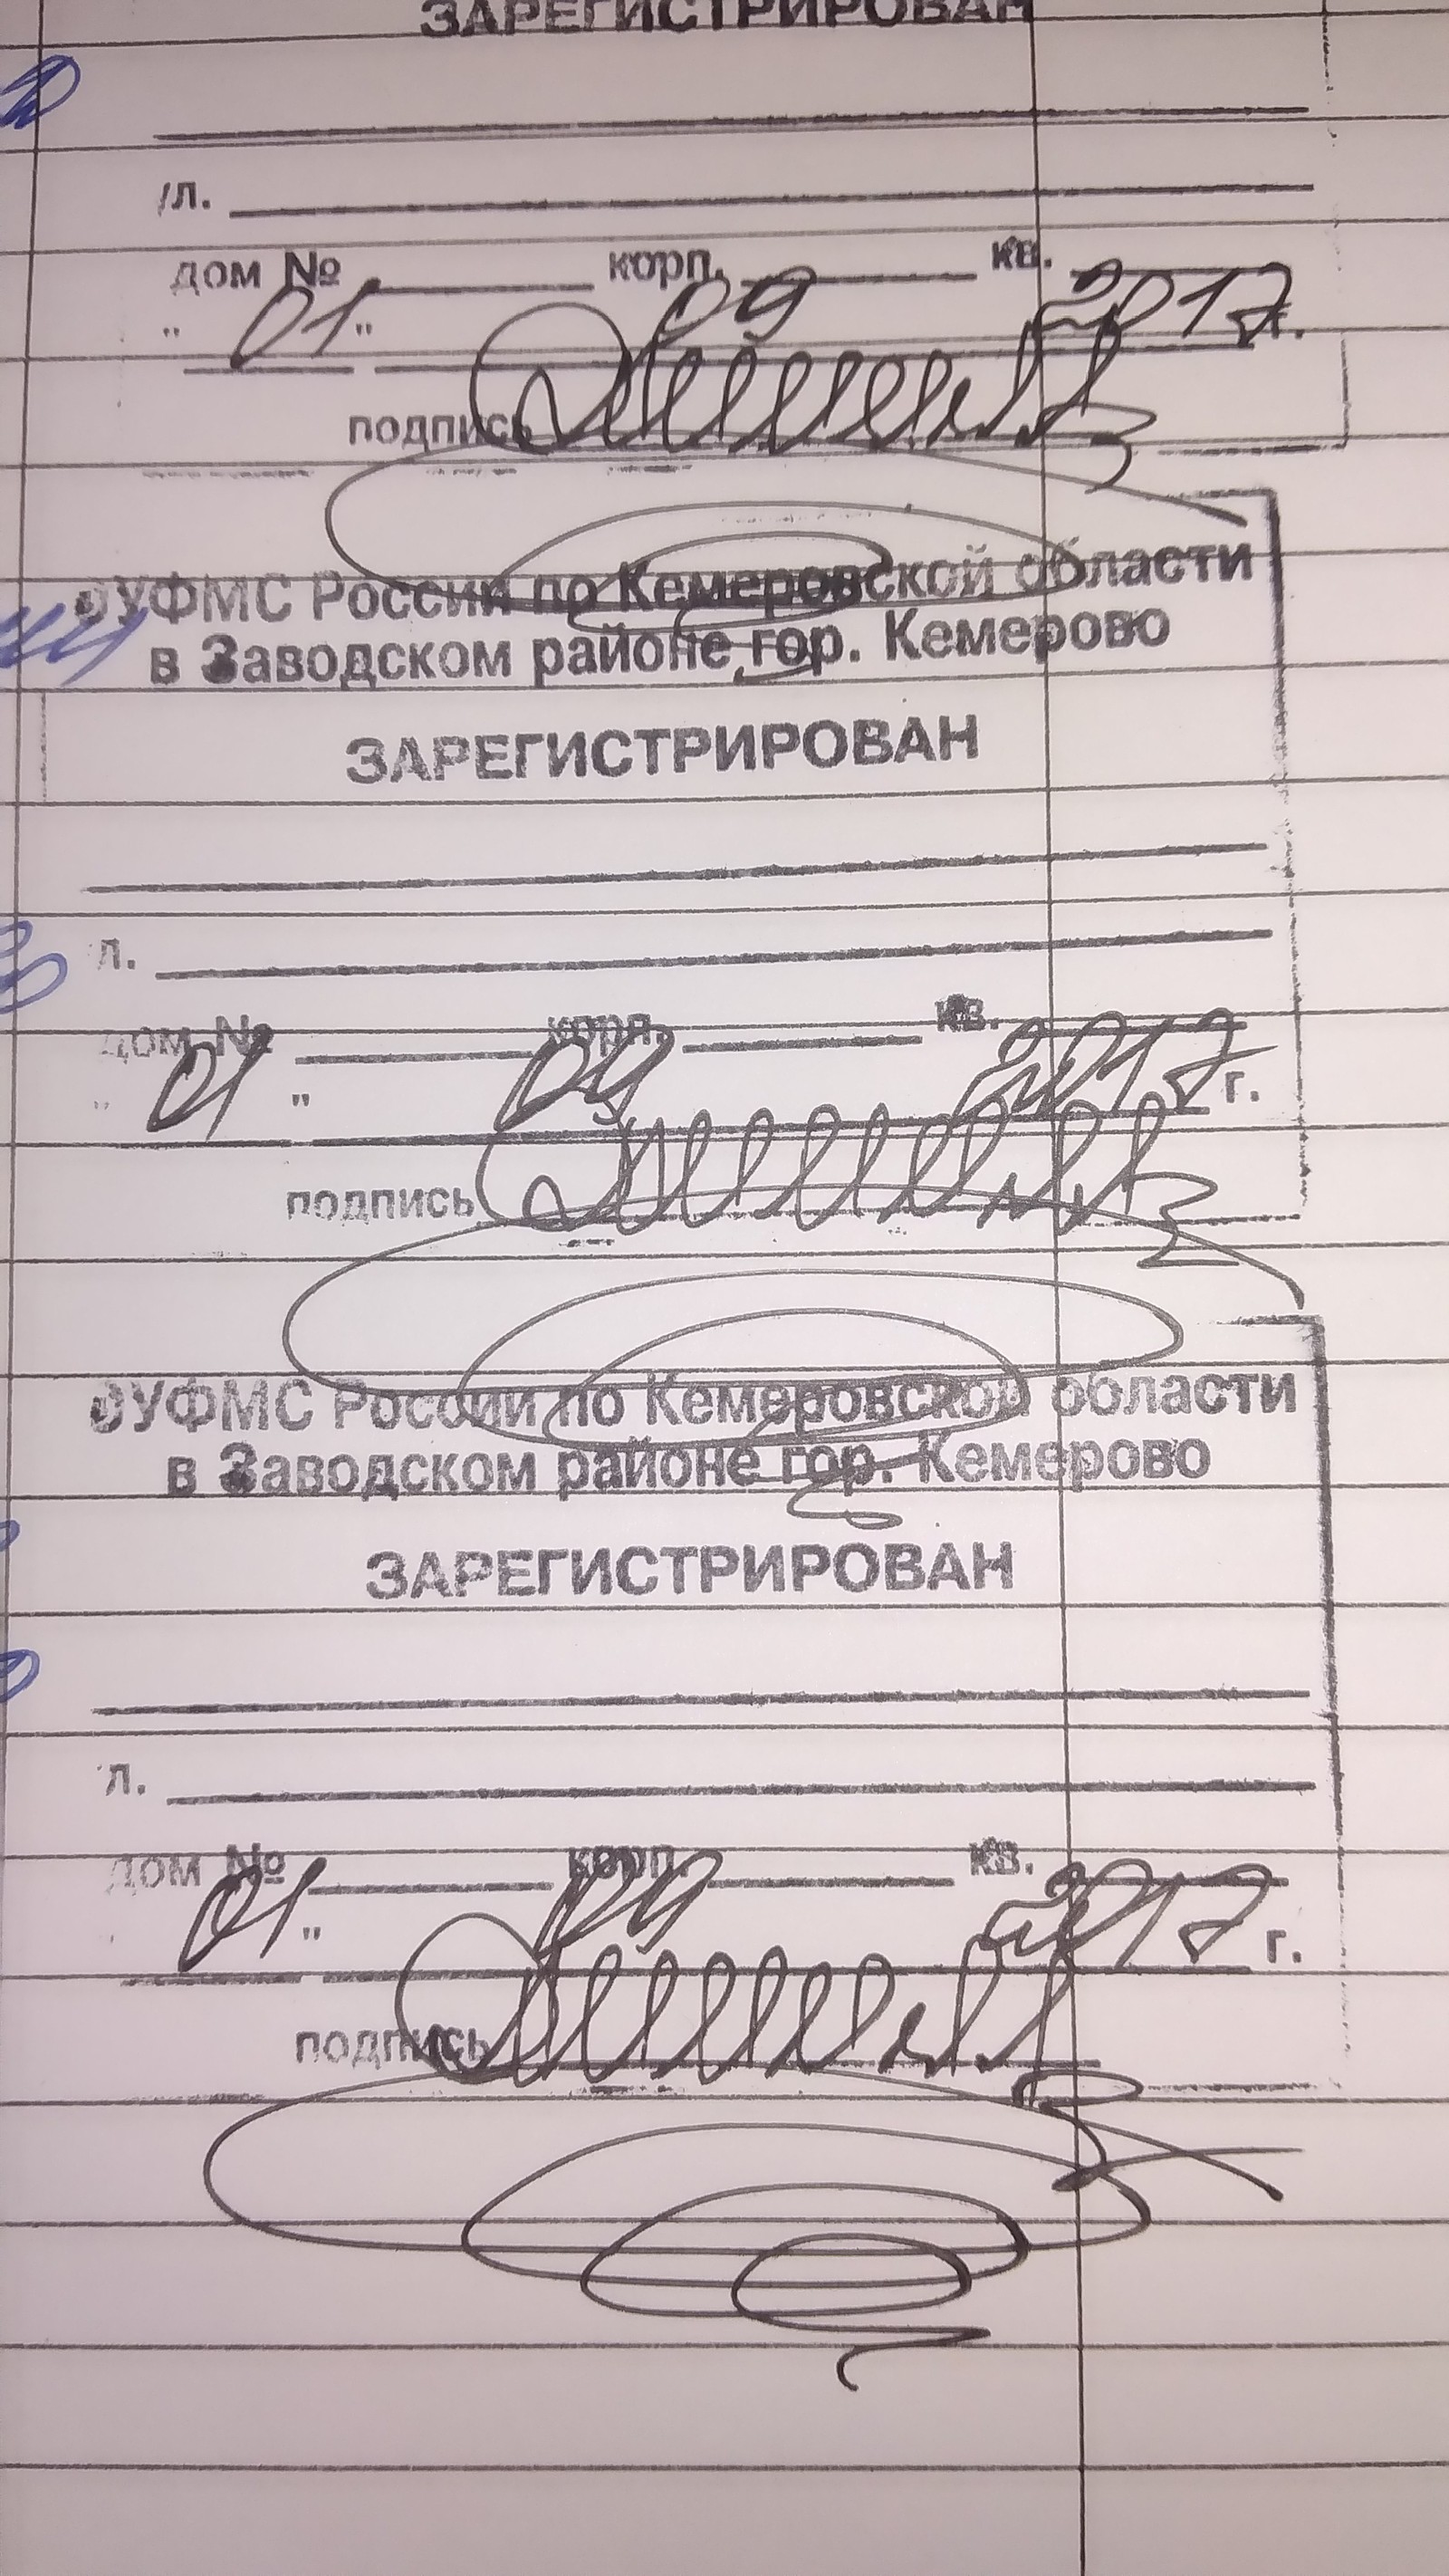 ЗАРЕГИСТРИРОВАН
л.
дом № корп. кв.
" 01 " 09 2017 г.
подпись
ОУФМС России по Кемеровской области
в Заводском районе гор. Кемерово
ЗАРЕГИСТРИРОВАН
л.
дом № корп. кв.
" 01 " 09 2017 г.
подпись
ОУФМС России по Кемеровской области
в Заводском районе гор. Кемерово
ЗАРЕГИСТРИРОВАН
л.
дом № корп. кв.
" 01 " 09 2017 г.
подпись